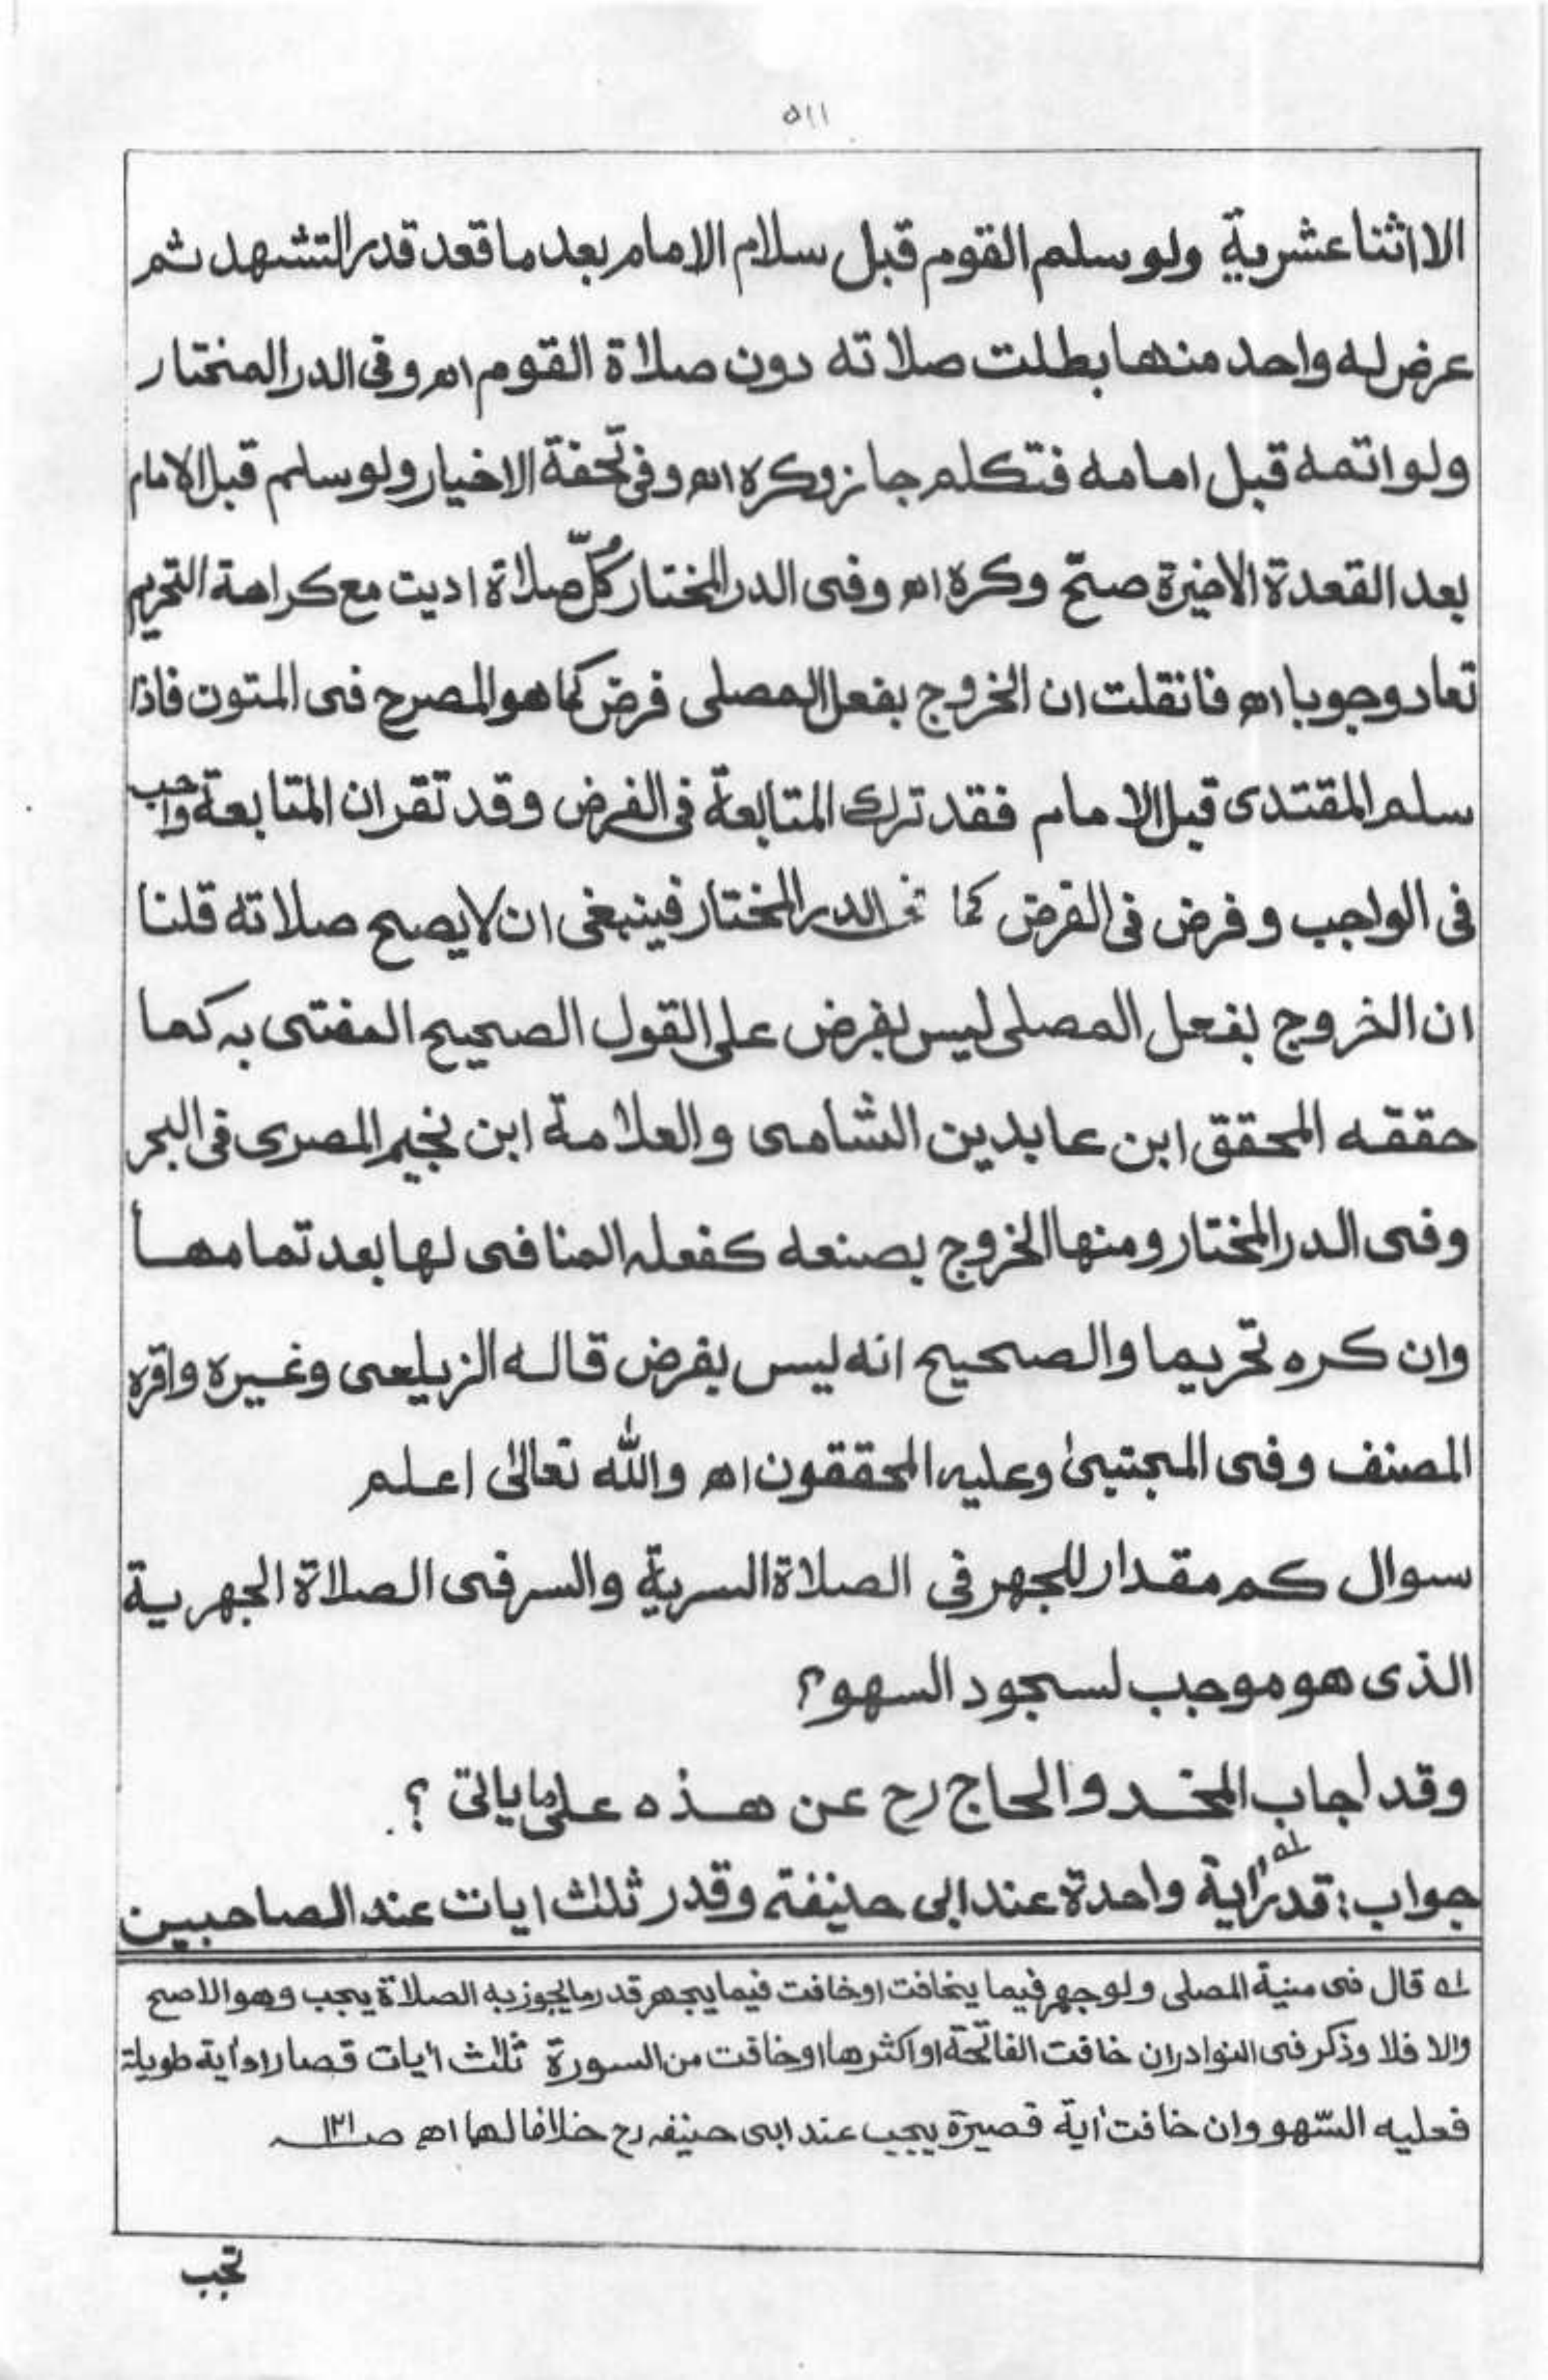 ٥١١
الا اثنا عشرية ولو سلم القوم قبل سلام الامام بعد ما قعد قدر التشهد ثم
عرض له واحد منها بطلت صلاته دون صلاة القوم اھ وفى الدر المختار
ولو اتمه قبل امامه فتكلم جاز وكره اھ وفى تحفة الاخيار ولو سلم قبل الامام
بعد القعدة الاخيرة صحّ وكره اھ وفى الدر المختار كُلّ صلاة اديت مع كراهة التحريم
تعاد وجوبا اھ فان قلت ان الخروج بفعل المصلى فرض كما هو المصرح فى المتون فاذا
سلم المقتدى قبل الامام فقد ترك المتابعة فى الفرض وقد تقر ان المتابعة واجب
فى الواجب وفرض فى الفرض كما فى الدر المختار فينبغى ان لا يصح صلاته قلنا
ان الخروج بفعل المصلى ليس بفرض على القول الصحيح المفتى به كما
حققه المحقق ابن عابدين الشامى والعلامة ابن نجيم المصرى فى البحر
وفى الدر المختار ومنها الخروج بصنعه كفعله المنافى لها بعد تمامها
وان كره تحريما والصحيح انه ليس بفرض قاله الزيلعى وغيره واقره
المصنف وفى المجتبىٰ وعليه المحققون اھ والله تعالىٰ اعلم
سوال كم مقدار للجهر فى الصلاة السرية والسر فى الصلاة الجهرية
الذى هو موجب لسجود السهو؟
وقد اجاب المخدو الحاج رح عن هذه على ما يالتى ؟
جواب: قدر اية واحدة عند ابى حنيفة وقدر ثلث ايات عند الصاحبين
لہ قال فى منية المصلى ولو جهر فيما يخافت او خافت فيما يجهر قدر ما يجوز به الصلاة يجب وهو الاصح
والا فلا وذكر فى النوادر ان خافت الفاتحة او اكثرها او خافت من السورة ثلٰث اٰيات قصار او اٰية طويلة
فعليه السّهو وان خافت اٰية قصيرة يجب عند ابى حنيفه رح خلافا لهما اھ صـ١٢١
تجب